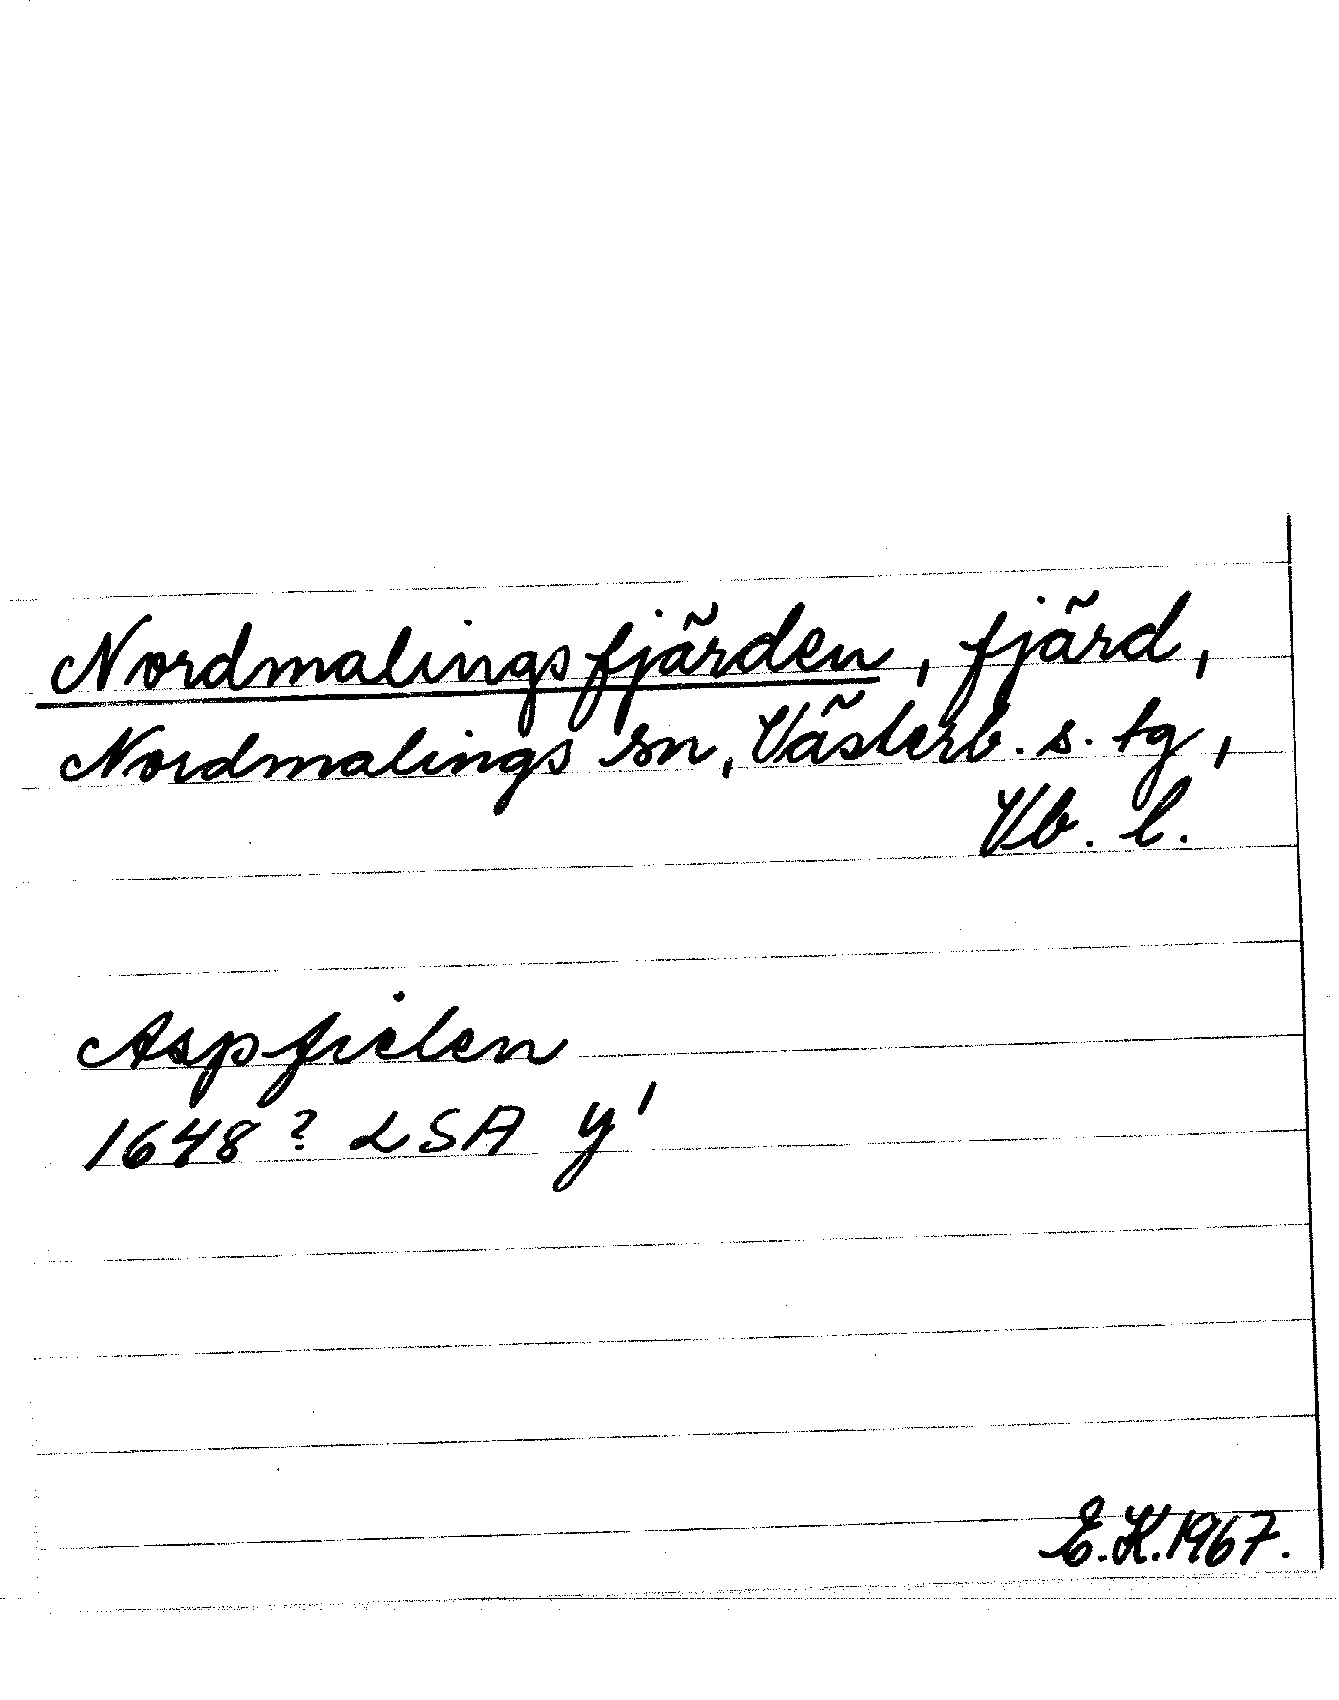 Nordmalingsfjärden, fjärd,
Nordmalings sn, Västerb. s. tg,
Vb. l.
Aspfielen
1648? LSA y'
E.K.1967.